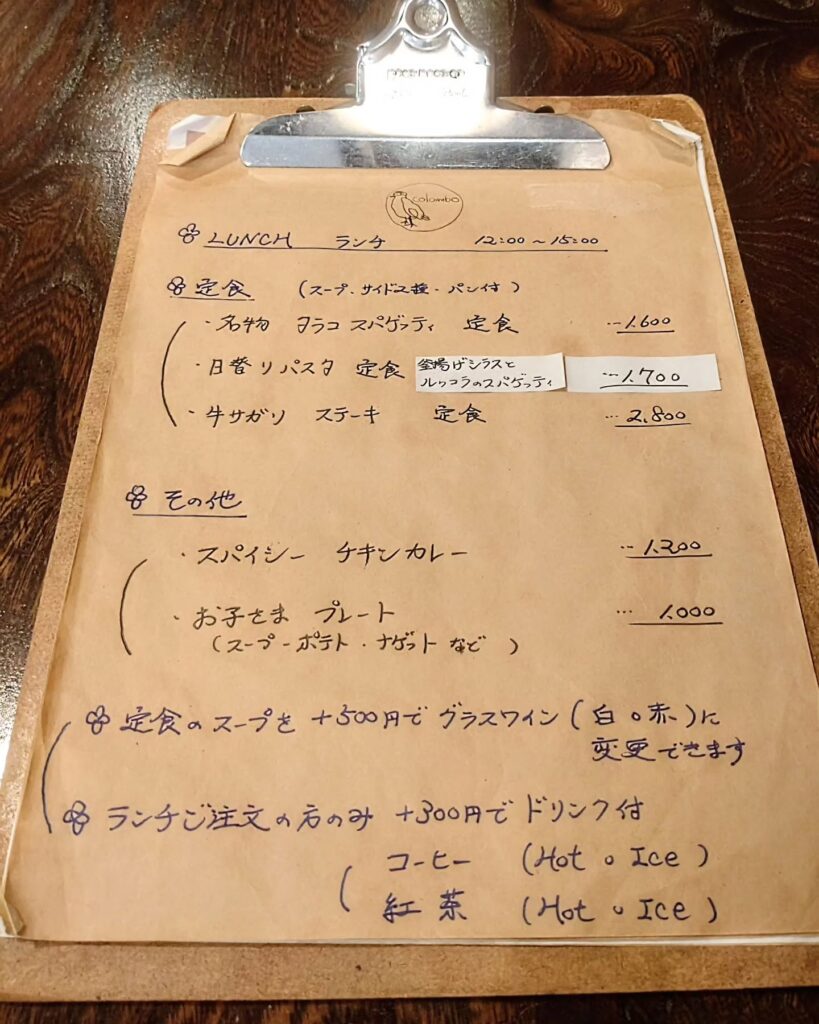 colombo
LUNCH ランチ 12:00~15:00
定食 (スープ、サイド2種・パン付)
・名物 タラコ スパゲッティ 定食 …1.600
・日替りパスタ 定食 釜揚げシラスと
ルッコラのスパゲッティ …1.700
・牛サガリ ステーキ 定食 …2.800
その他
・スパイシー チキンカレー …1.200
・お子さま プレート … 1.000
(スープ・ポテト・ナゲット など)
定食のスープを +500円で グラスワイン(白。赤)に
変更できます
ランチご注文の方のみ +300円で ドリンク付
コーヒー (Hot。Ice)
紅茶 (Hot。Ice)